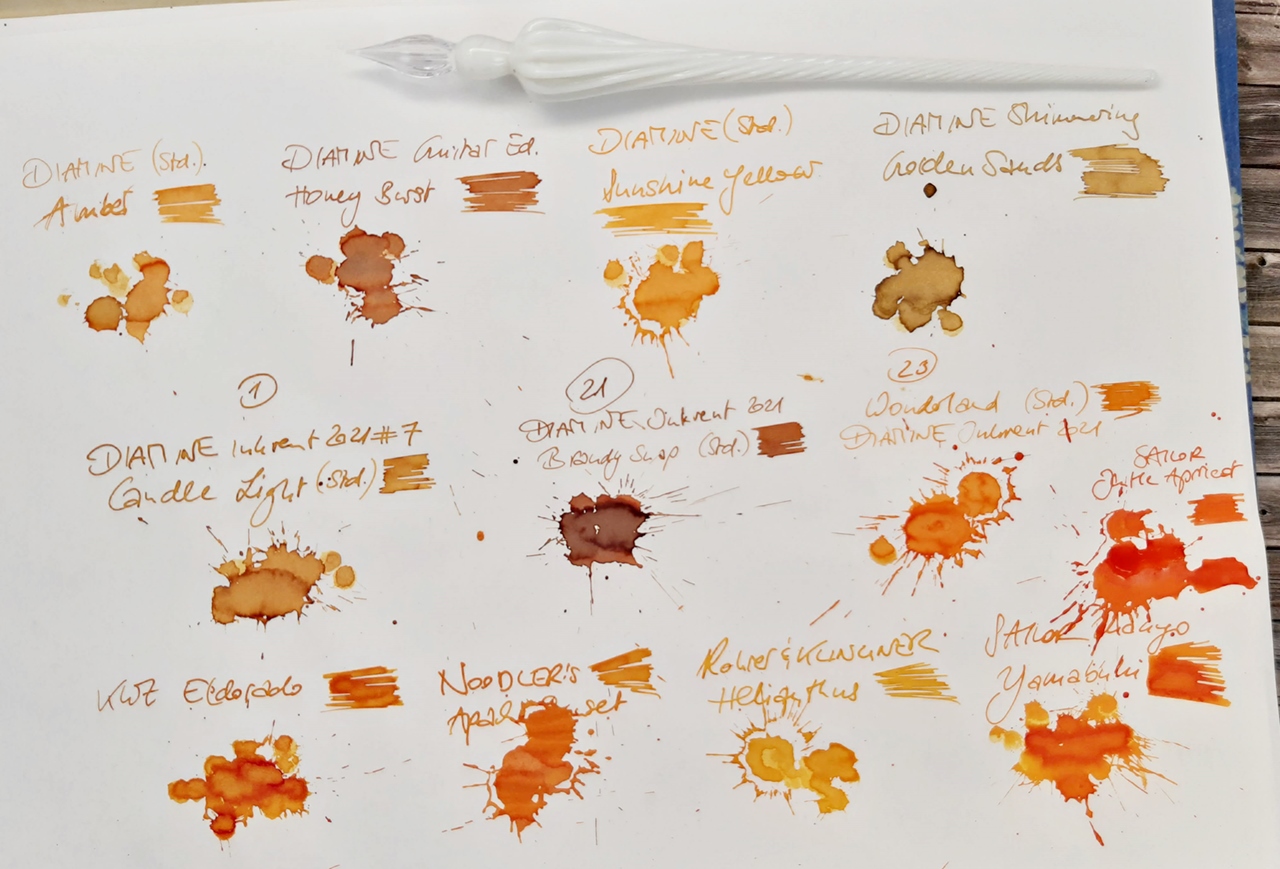 DIAMINE (Std.)
Amber
DIAMINE Guitar Ed.
Honey Burst
DIAMINE (Std.)
Sunshine Yellow
DIAMINE Shimmering
Golden Sands
1
DIAMINE Inkvent 2021 #7
Candle Light (Std.)
21
DIAMINE Inkvent 2021
Brandy Snap (Std.)
23
Wonderland (Std.)
DIAMINE Inkvent 2021
SAILOR
Apricot
KWZ Eldorado
NOODLER'S
Rohrer & KLINGNER
Helianthus
SAILOR
Yamabuki